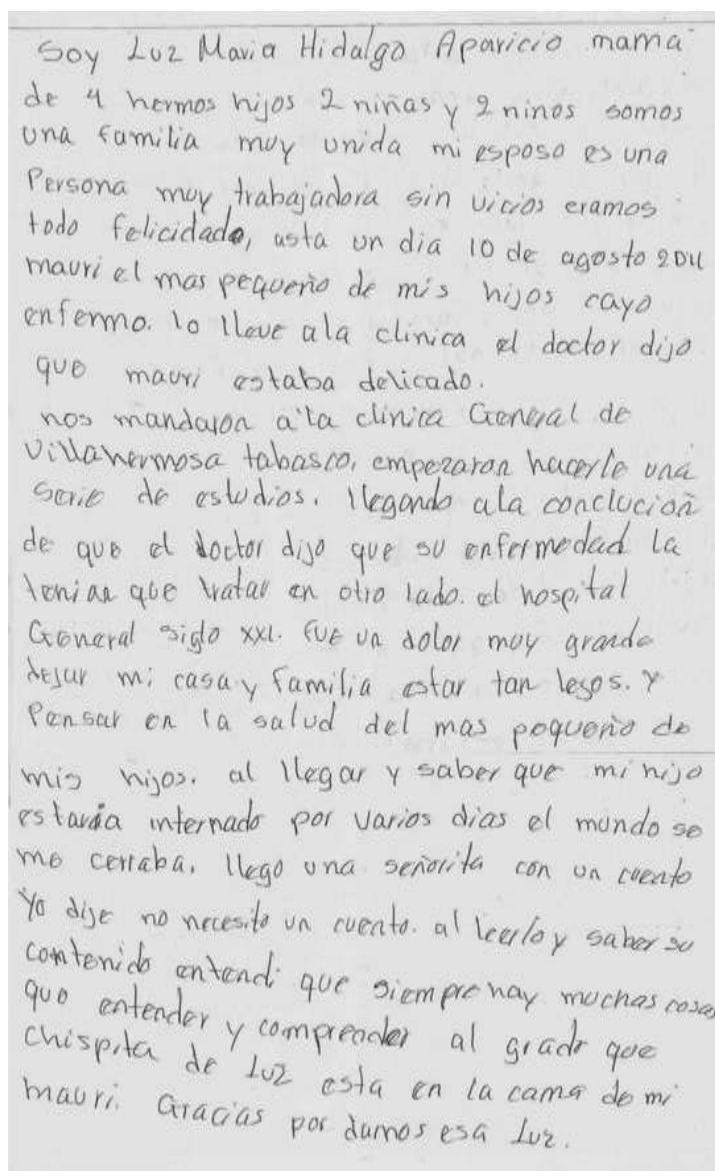 Soy Luz Maria Hidalgo Aparicio mama
de 4 hermos hijos 2 niñas y 2 ninos somos
una familia muy unida mi esposo es una
Persona muy trabajadora sin vicios eramos
todo felicidade, asta un dia 10 de agosto 2011
mauri el mas pequeño de mis hijos cayo
enfermo. lo lleve ala clinica el doctor dijo
que mauri estaba delicado.
nos mandaron a la clinica General de
Villahermosa tabasco, empezaron hacerle una
serie de estudios. llegando ala conclución
de que el doctor dijo que su enfermedad la
tenian que tratar en otro lado. el hospital
General siglo XXI. fue un dolor muy grande
dejar mi casa y familia estar tan lejos. y
Pensar en la salud del mas pequeño de
mis hijos. al llegar y saber que mi hijo
estaria internado por varios dias el mundo se
me cerraba. llego una señorita con un cuento
Yo dije no necesito un cuento. al leerlo y saber su
contenido entendi que siempre hay muchas cosas
que entender y comprender al grado que
chispita de Luz esta en la cama de mi
mauri. Gracias por darnos esa Luz.